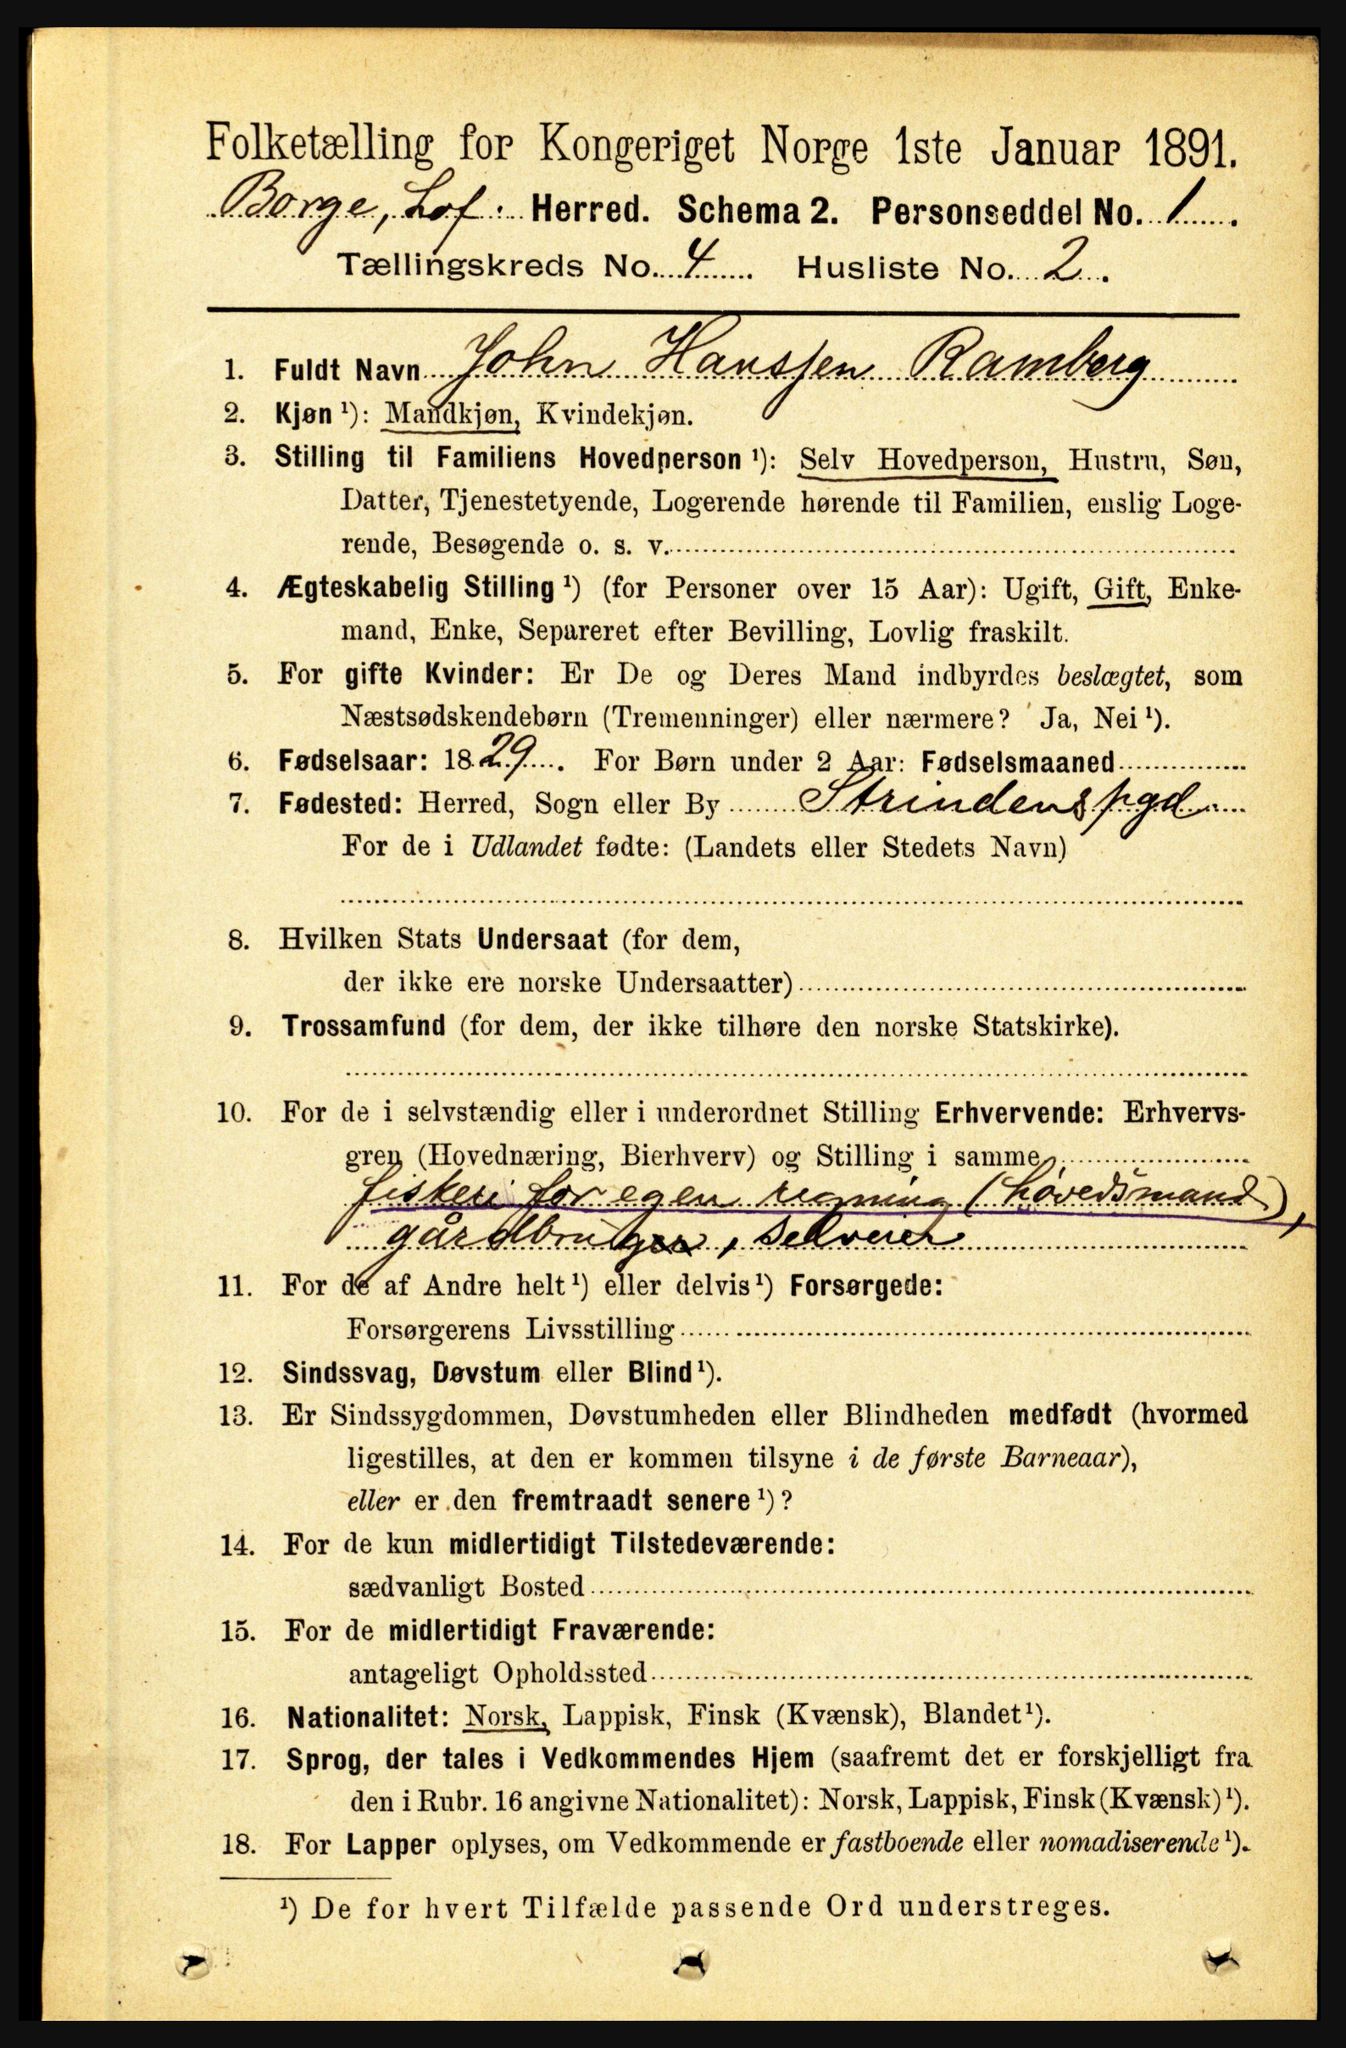 Folketælling for Kongeriget Norge 1ste Januar 1891.
Borge, Lof. Herred. Schema 2. Personseddel No. 1.
Tællingskreds No. 4. Husliste No. 2.
1. Fuldt Navn John Hanssen Ramberg
2. Kjøn ¹): Mandkjøn, Kvindekjøn.
3. Stilling til Familiens Hovedperson ¹): Selv Hovedperson, Hustru, Søn,
Datter, Tjenestetyende, Logerende hørende til Familien, enslig Loge-
rende, Besøgende o. s. v.
4. Ægteskabelig Stilling ¹) (for Personer over 15 Aar): Ugift, Gift, Enke-
mand, Enke, Separeret efter Bevilling, Lovlig fraskilt.
5. For gifte Kvinder: Er De og Deres Mand indbyrdes beslægtet, som
Næstsødskendebørn (Tremenninger) eller nærmere? Ja, Nei ¹).
6. Fødselsaar: 1829. For Børn under 2 Aar: Fødselsmaaned
7. Fødested: Herred, Sogn eller By Strindens pgd.
For de i Udlandet fødte: (Landets eller Stedets Navn)
8. Hvilken Stats Undersaat (for dem,
der ikke ere norske Undersaatter)
9. Trossamfund (for dem, der ikke tilhøre den norske Statskirke).
10. For de i selvstændig eller i underordnet Stilling Erhvervende: Erhvervs-
gren (Hovednæring, Bierhverv) og Stilling i samme
fiskeri for egen regning (høvedsmand),
gårdbruger, selveier
11. For de af Andre helt ¹) eller delvis ¹) Forsørgede:
Forsørgerens Livsstilling
12. Sindssvag, Døvstum eller Blind ¹).
13. Er Sindssygdommen, Døvstumheden eller Blindheden medfødt (hvormed
ligestilles, at den er kommen tilsyne i de første Barneaar),
eller er den fremtraadt senere ¹)?
14. For de kun midlertidigt Tilstedeværende:
sædvanligt Bosted
15. For de midlertidigt Fraværende:
antageligt Opholdssted
16. Nationalitet: Norsk, Lappisk, Finsk (Kvænsk), Blandet ¹).
17. Sprog, der tales i Vedkommendes Hjem (saafremt det er forskjelligt fra
den i Rubr. 16 angivne Nationalitet): Norsk, Lappisk, Finsk (Kvænsk) ¹).
18. For Lapper oplyses, om Vedkommende er fastboende eller nomadiserende ¹).
¹) De for hvert Tilfælde passende Ord understreges.